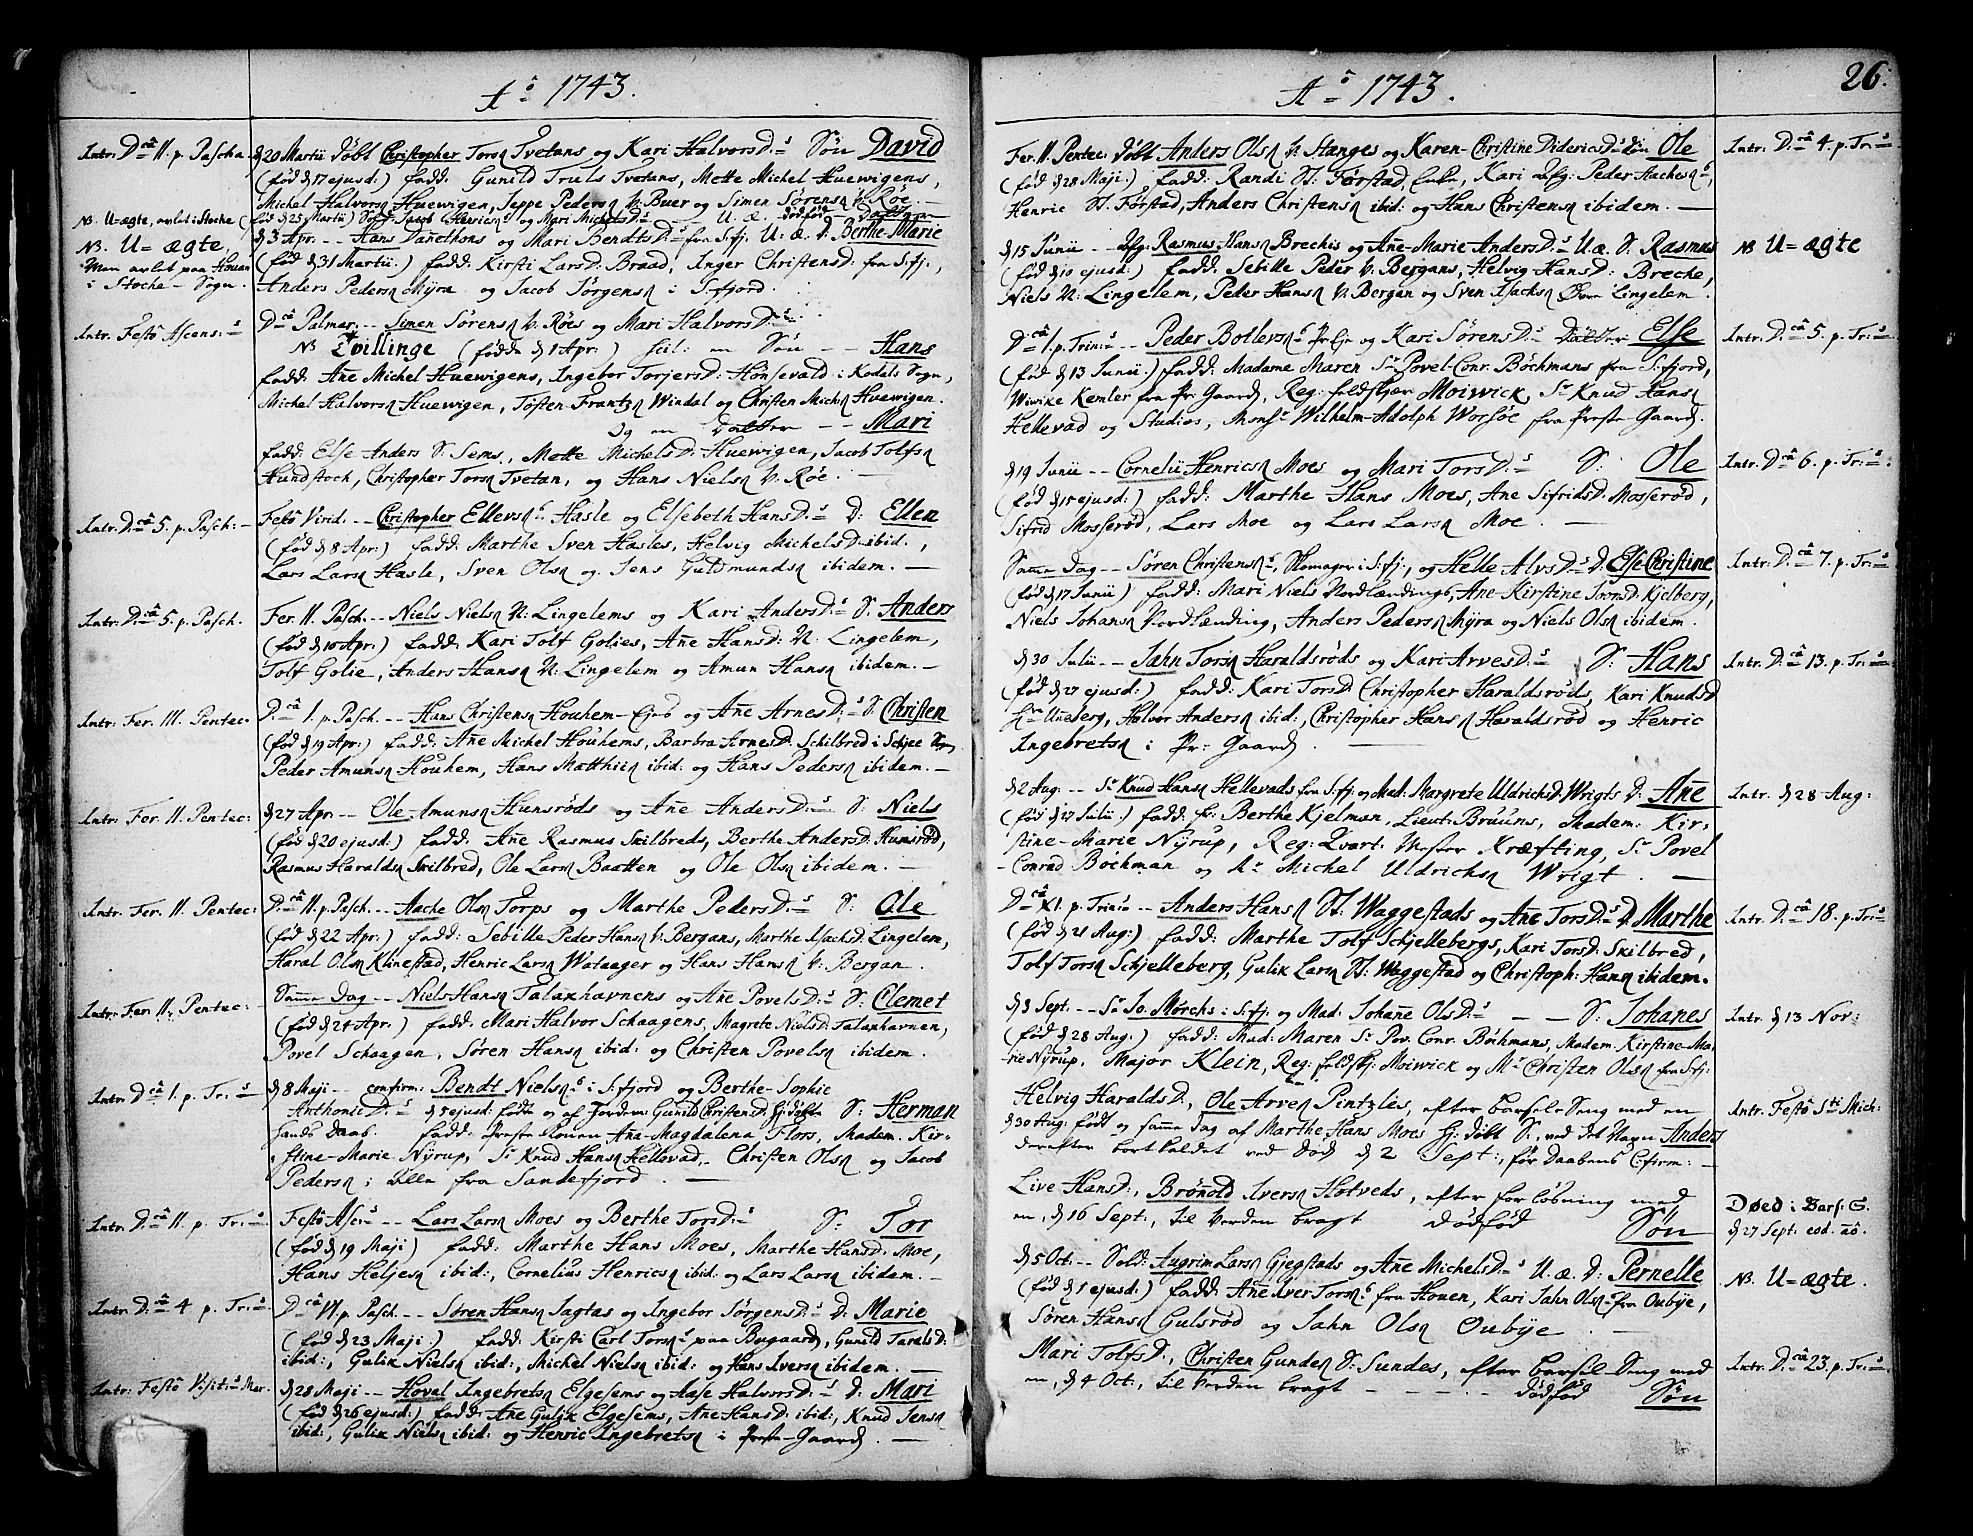 Aô 1743.
Intr. D.câ II. p. Pascha
d 20 Martii døbt Christopher Torsn Tvetans og Kari Halvors D.s Søn David
(fød d 17 ejusd:) fadd: Gunild Truls Tvetans, Mette Michel Huewigens,
Michel Halvorsn Huewigen, Jeppe Pedersn V. Buer og Simen Sørensn V. Röe. —
NB. U-ægte, avlet i Stoche
(fød d 25 Martii) Sold. Jacob Henricsn og Mari Michels D.s — U. æ. dødfød
NB. U=ægte,
Men avlet paa Houen
i Stoche-Sogn.
d 3 Apr. -- Hans Danethons og Mari Bendts D.s fra S:fj. U: æ. D. Berthe-Marie
(fød d 31 Martii:) fadd: Kirsti Lars D: Braad, Inger Christens D: fra S:fj:,
Anders Pedersn Myra og Jacob Jörgensn i S:fjord.
Intr. Festô Ascens:s
D.câ Palmar: -- Simen Sörensn V. Röes og Mari Halvors D:s
NB Tvillinge (fødde d 1 Apr:) scil: en Søn -- Hans
fadd: Ane Michel Huewigens, Ingebor Torjers D: Hönsevald i Kodals Sogn,
Michel Halvorsn Huewigen, Tosten Frantzn Windal og Christen Michsn Huewigen.
Og en Datter -- Mari
fadd: Else Anders S: Sems, Mette Michels D: Huewigen, Jacob Tolfsn
Hundstoch, Christopher Torsn Tvetan, og Hans Nielsn V. Röe. —
Intr. D.câ 5. p. Pasch: —
Festô Virid: -- Christopher Ellevsns Hasle og Elsebeth Hans D:s D: Ellen
(fød d 8 Apr:) fadd: Marthe Sven Hasles, Helvig Michels D. ibid.,
Lars Larsn Hasle, Sven Olsn og Jens Guldmundsn ibidem. —
Intr. D:câ 5. p. Pasch.
Fer. II. Pasch. -- Niels Nielsn N: Lingelems og Kari Anders D:s S: Anders
(fød d 10 Apr:) fadd: Kari Tolf Golies, Ane Hans D: N: Lingelem,
Tolf Golie, Anders Hansn N: Lingelem og Amun Hansn ibidem. —
Intr. Fer. III. Pentec.
D.câ 1. p. Pasch. -- Hans Christensn Houhem-Ejes og Ane Arnes D:s S: Christen
(fød d 19 Apr:) fadd: Ane Michel Houhems, Barbra Arnes D. Schilbred i Schjee Sogn
Peder Amunsn Houhem, Hans Matthisn ibid: og Hans Pedersn ibidem. —
Intr. Fer. II. Pentec:
d 27 Apr. -- Ole Amunsn Hunsröds og Ane Anders D:s S: Niels
(fød d 20 ejusd:) fadd: Ane Rasmus Skilbreds, Berthe Anders D: Hunsröd,
Rasmus Haraldsn Skilbred, Ole Larsn Baatten og Ole Olsn ibidem. —
Intr. Fer. II. Pentec:
D.câ II. p. Pasch. -- Aache Olsn Torps og Marthe Peders D:s S: Ole
(fød d 22 Apr:) fadd: Sebille Peder Hansn V. Bergans, Marthe Isachs D: Lingelem,
Haral Olsn Klinestad, Henric Larsn Wataager og Hans Hansn V: Bergan.
Intr. Fer. II. Pentec:
Same Dag -- Niels Hansn Talaxhavnens og Ane Povels D:s S: Clemet
(fød d 24 Apr.) fadd: Mari Halvor Schaagens, Magrete Niels D: Talaxhavnen,
Povel Schaagen, Sören Hansn ibid: og Christen Povelsn ibidem.
Intr. D câ 1. p. Tr:s
d 8 Maji -- confirm: Bendt Nielsns i S:fjord og Berthe-Sophie
Anthonii D:s d 5 ejusd: fødde og af Jordem: Gunild Christens D. Hj: døbte S: Herman
hands Daab. fadd: Præste Konen Ana-Magdalena Flors, Madem. Kir-
stine-Marie Nÿrup, Sr. Knud Hansn Hellevad, Christen Olsn og Jacob
Pedersn; alle fra Sandefjord. —
Intr. D:câ II. p. Tr:s
Festô Asc:s -- Lars Larsn Moes og Berthe Tors D:s S: Tor
(fød d 19 Maji) fadd: Marthe Hans Moes, Marthe Hans D: Moe,
Hans Heljesn ibid:, Cornelius Henricsn ibid. og Lars Larsn ibidem. —
Intr. D:câ 4 p. Tr:s
D câ VI. p Pasch. -- Sören Hansn Jagtas og Ingebor Jörgens D:s D: Marie
(fød d 23 Maji:) fadd: Kirsti Carl Torsns paa Bugaard, Gunild Tarals D:
ibid:, Gulik Nielsn ibid:, Michel Nielsn ibid: og Hans Iversn ibidem. —
Intr: Festô Visit:s Mar.
d 28 Maji -- Hovel Ingebretsn Elgesems og Aase Halvors D:s D: Mari
(fød d 26 ejusd:) fadd: Ane Gulik Elgesems, Ane Hans D: ibid:, Knud Jensn
ibid:, Gulik Nielsn ibid: og Henric Ingebretsn i Præste-Gaard. —
Aô 1743.
26.
Fer. II. Pentec: døbt Anders Olsn V. Stanges og Karen-Christine Diderics D:s Søn Ole
Intr. D:câ 4. p. Tr:s
(fød d 28 Maji:) fadd: Randi Förstad, Enke, Kari Peder Haches,
Henric Förstad, Anders Christensn ibid: og Hans Christensn ibidem. —
d 15 Junii -- Rasmus Hansn Brechis og Ane-Marie Anders D:s U. æ. S: Rasmus
NB U=ægte
(fød d 10 ejusd:) fadd: Sebille Peder V. Bergans, Helvig Hans D: Breche,
Niels N: Lingelem, Peder Hansn V. Bergan og Sven Isachsn Lingelem.
D câ 1. p. Trin:s -- Peder Botlevsns og Kari Sörens D:s Datter Else
Intr. D:câ 5. p. Tr:s
(fød d 13 Junii) fadd: Madame Maren Sr Povel-Conr. Böchmans fra S:fjord,
Wivike Kemler fra Pr: Gaard, Reg: feldskjær Moiwick, Sr Knud Hansn
Hellevad og Studios, Monsr Wilhelm-Adolph Worsöe fra Præste-Gaard.
d 19 Junii -- Cornelii Henricsn Moes og Mari Tors D:s S: Ole
Intr. D:câ 6. p. Tr:s
(fød d 15 ejusd:) fadd: Marthe Hans Moes, Ane Sifrids D: Mosseröd,
Sifrid Mosseröd, Lars Moe og Lars Larsn Moe. —
Same Dag -- Sören Christensns, Skomager i S:fj:, og Helle Alvs D:s D. Else Christine
Intr. D:câ 7. p. Tr:s
(fød d 17 Junii) fadd: Mari Niels Nordlændings, Ane-Kirstine Joons D. Kjelberg,
Niels Johansn Nordlænding, Anders Pedersn Mÿra og Niels Olsn ibidem.
d 30 Julii -- Jahn Torsn Haraldsröds og Kari Arves D:s S: Hans
Intr. D:câ 13. p. Tr:s
(fød d 27 ejusd:) fadd: Kari Tors D: Christopher Haraldsröds, Kari Knuds D
fra Uneberg, Halvor Andersn ibid:, Christopher Hansn Haraldsröd og Henric
Ingebretsn i Pr: Gaard. —
d 2 Aug: -- Sr Knud Hansn Hellevads fra S:fj: og Mad. Margrete Uldrichs D: Wrigts D. Ane
Intr. d 28 Aug:
(fød d 27 Julii:) fadd: Fr: Berthe Kjelman, Lieut: Bruuns, Madem: Kir-
stine-Marie Nÿrup, Reg: Qvart: Mester Kræfting, Sr Povel
Conrad Böchman og Mr Michel Uldrichsn Wrigt. —
D câ XI. p. Trin:s -- Anders Hansn Waggestads og Ane Tors D:s D. Marthe
Intr. D:câ 18. p. Tr:s
(fød d 21 Aug:) fadd: Marthe Tolf Schjellebergs, Kari Tors D: Skilbred,
Tolf Torsn Schjelleberg, Gulik Larsn Waggestad og Christoph: Hansn ibidem.
d 3 Sept. -- Sr Jo. Mørchs i S:fj: og Mad: Johane Ols D:s — — S: Johanes
Intr. d 13 Nov:
(fød d 28 Aug:) fadd: Mad: Maren Sr Pov. Conr. Böchmans, Madem. Kirstine-Ma-
rie Nÿrup, Major Klein, Reg: feldskj: Moiwick og Mr Christen Olsn fra S:fj:
Helvig Haralds D:, Ole Arvesn Pintzlis, efter barsel-Seng med en
Intr. Festô Sti Mich:
d 30 Aug: født og same Dag af Marthe Hans Moes Hj: døbt S:, ved det Navn Anders
derefter bortkaldet ved Død d 2 Sept:, før Daabens Cfirm: —
Live Hans D:, Brönold Iversn Hotveds, efter forløsning med
Døed i Bars: S.
en, d 16 Sept:, til Verden bragt dødfød Søn
d 27 Sept: eod. aô.
d 5 Oct. -- Sold: Augrim Larsn Gjegstads og Ane Michels D:s U. æ. D: Pernelle
NB. U=ægte.
(fød d 1 ejusd:) fadd: Ane Iver Torsns fra Houen, Kari Jahn Olsns fra Oubÿe,
Sören Hansn Gulsröd og Jahn Olsn Oubÿe —
Mari Tolfs D:, Christen Gundesn S: Sundes, efter barsel-Seng med
Intr. D:câ 23. p. Tr:s
en, d 4 Oct:, til Verden bragt - - - - - dødfød Søn